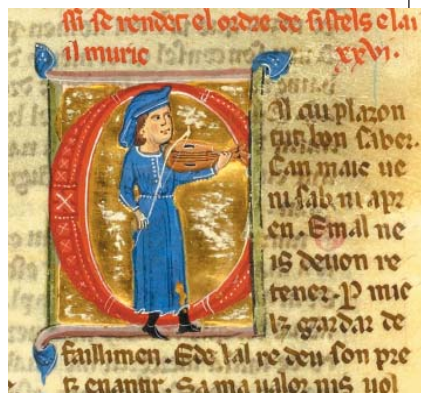 ssi se rendet el ordre de sistels e lai
il muric xxvi.
il cui plazon
tut bon saber.
Can maic ue
ni sab ni apr
en. Emal ne
is deuon re
tener. P mie
lz gardar de
faillimen. Ede lal re deu son pre
tz enantir. Sama ualor nis uol